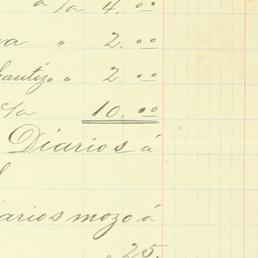 a /a 4.00
va " 2.00
bautizo " 2.00
c/a 10.00
Diarios á
iarios mozo á
" 25.